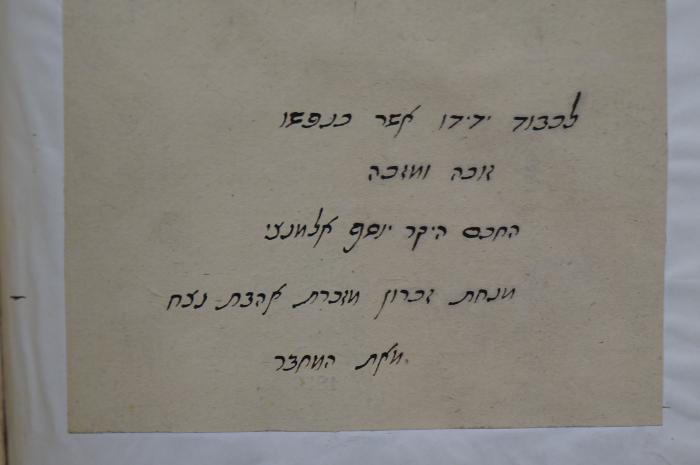 לכבוד ידידו אשר כנפשו
זוכה ומזכה
החכם היקר יוסף אלמנצי
מנחת זכרון מזכרת אהבת נצח
מאת המחבר